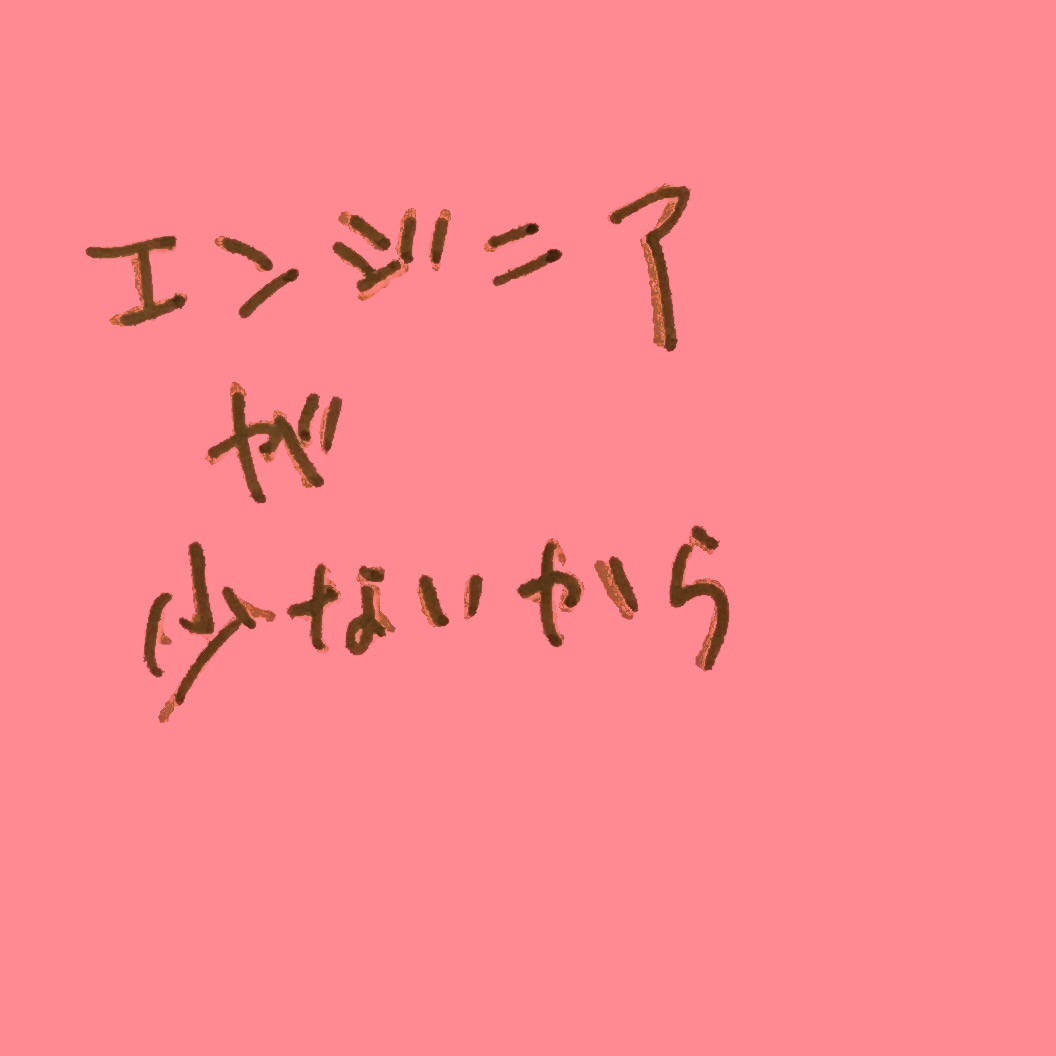 エンジニア
が
少ないから